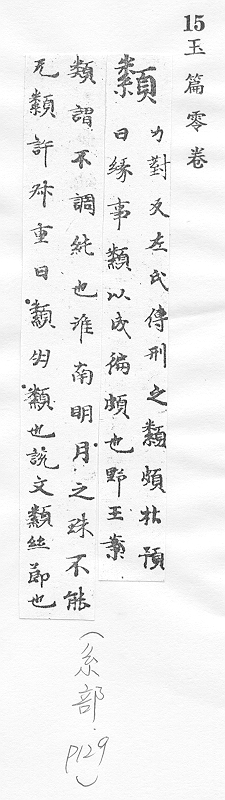 15 玉篇零卷
纇
力對反左氏傳刑之纇頗杜預
曰緣事纇以成偏頗也野王案
纇謂不調純也淮南明月之珠不能
无纇許叔重曰纇纇也說文纇絲節也
(糸部. P129)